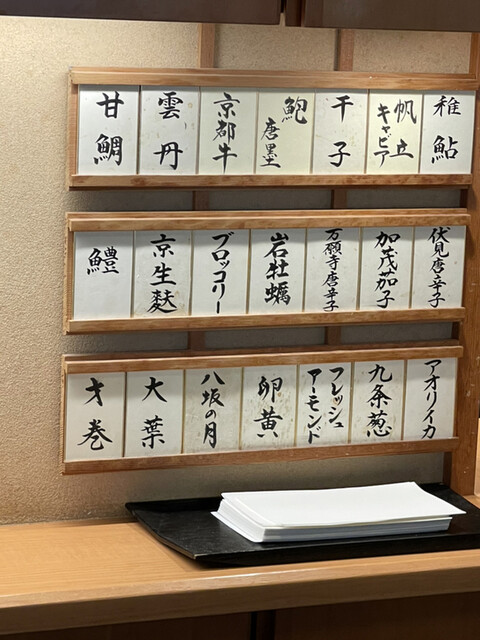 稚鮎
帆立
キャビア
干子
鮑
唐墨
京都牛
雲丹
甘鯛
伏見唐辛子
加茂茄子
万願寺唐辛子
岩牡蠣
ブロッコリー
京生麩
鱧
アオリイカ
九条葱
フレッシュ
アーモンド
卵黄
八坂の月
大葉
才巻